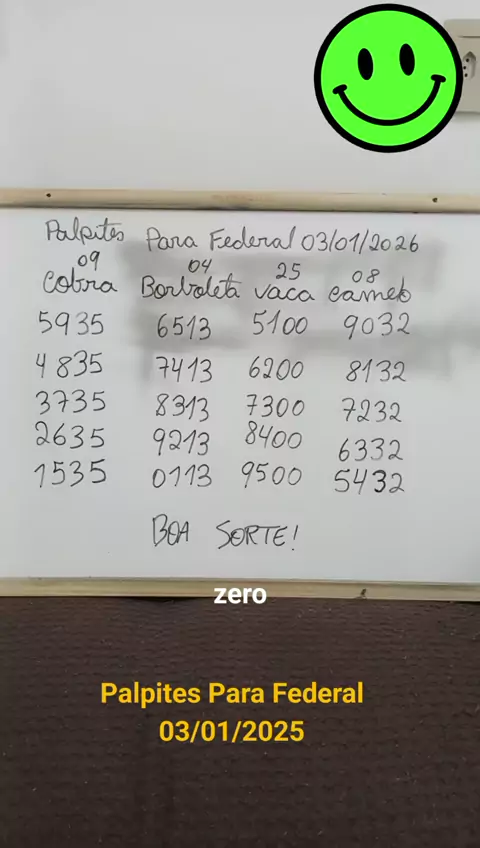 Palpites Para Federal 03/01/2026
09 04 25 08
Cobra Borboleta vaca camelo
5935 6513 5100 9032
4835 7413 6200 8132
3735 8313 7300 7232
2635 9213 8400 6332
1535 0113 9500 5432
BOA SORTE!
zero
Palpites Para Federal
03/01/2025